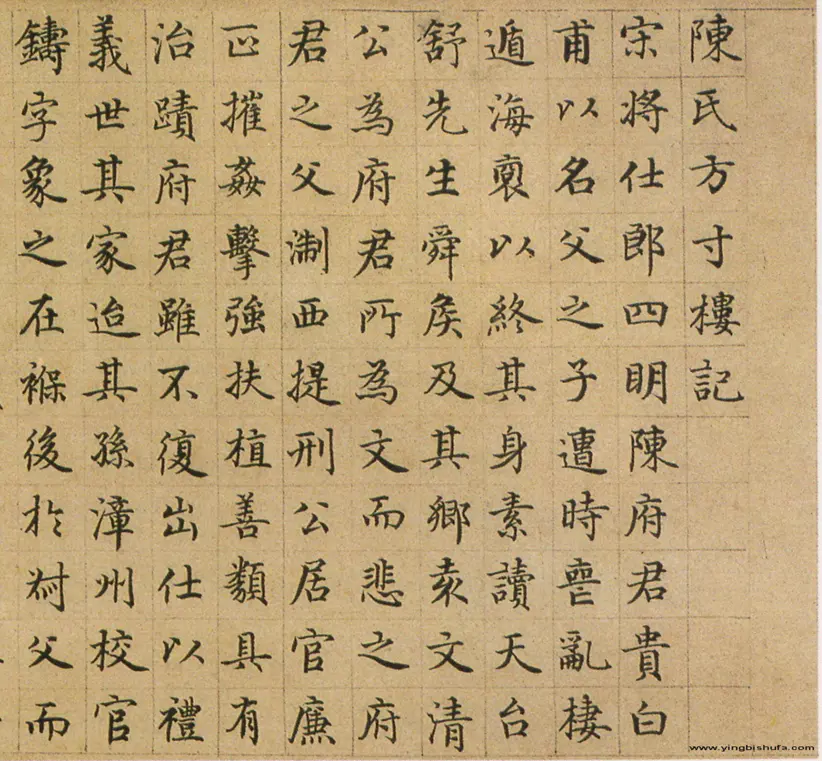 陳氏方寸樓記
宋將仕郎四明陳府君貴白
甫以名父之子遭時喪亂棲
遁海裔以終其身素讀天台
舒先生舜矦及其鄉袁文清
公為府君所為文而悲之府
君之父淛西提刑公居官廉
正摧姦擊強扶植善類具有
治蹟府君雖不復出仕以禮
義世其家迨其孫漳州校官
鑄字象之在褓後於尌父而
www.yingbishufa.com